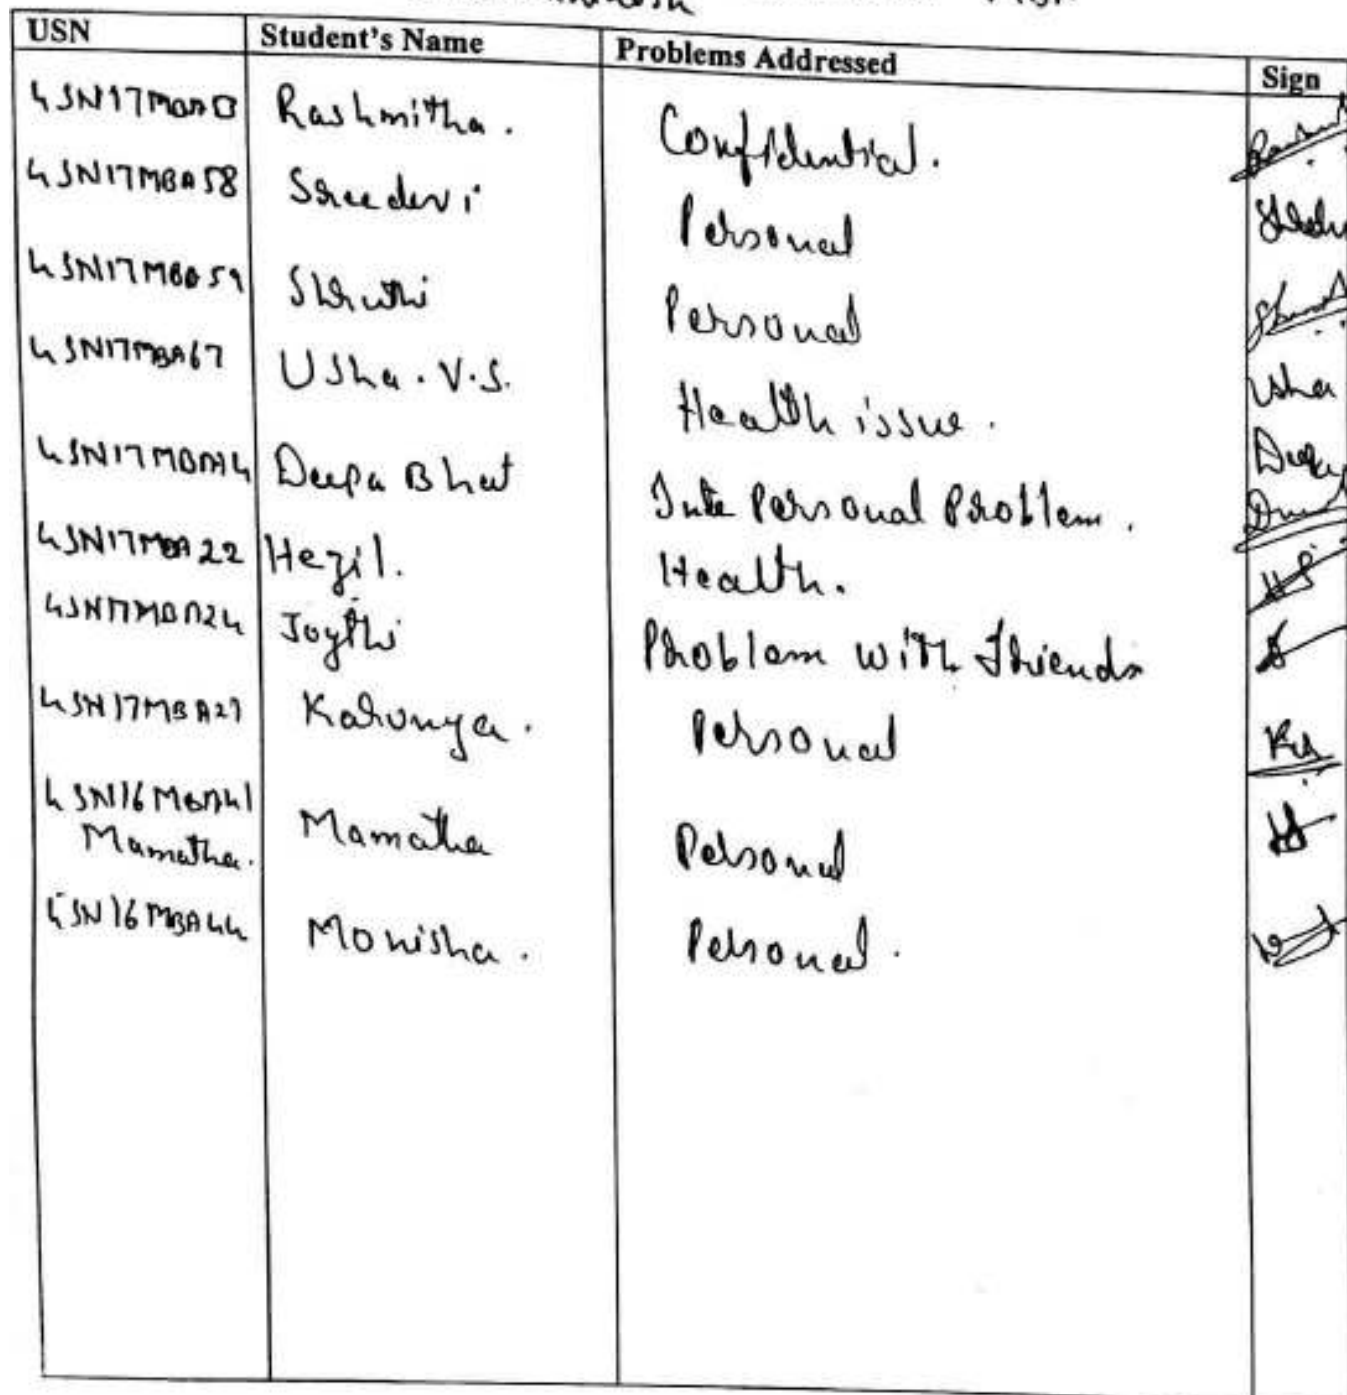 USN Student's Name Problems Addressed Sign
Rashmitha. Confidential.
4SN17MBA58 Sreedevi Personal
4SN17MBA59 Shruthi Personal
4SN17MBA67 Usha. V.S. Health issue. Usha
Deepa Bhat Inte Personal Problem.
4SN17MBA22 Hezil. Health.
4SN17MBA24 Joythi Problem with Friends
4SN17MBA27 Karunya. Personal
4SN16MBA41 Mamatha Personal
Mamatha.
4SN16MBA44 Monisha. Personal.